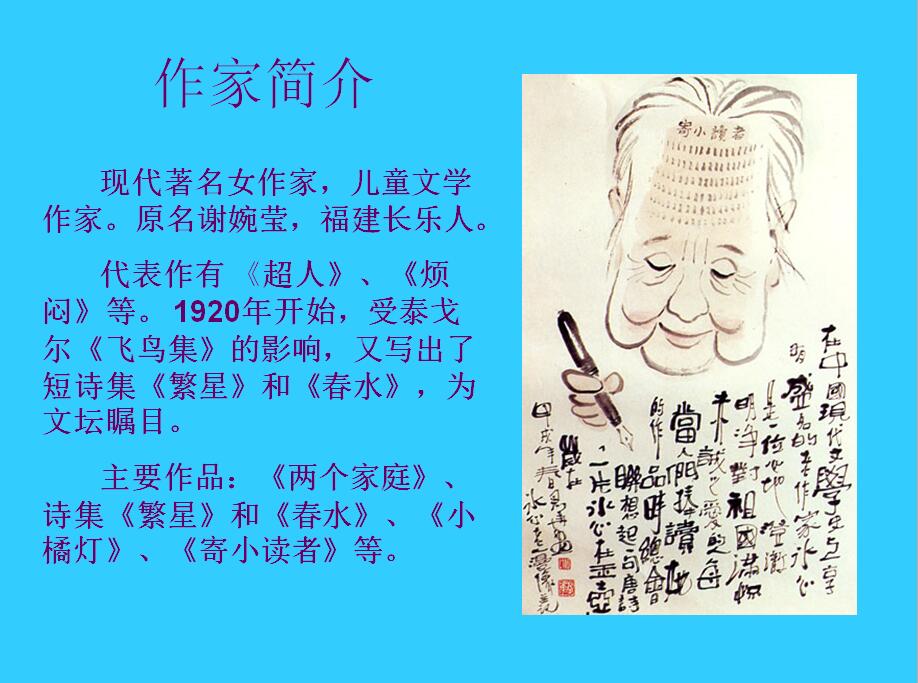 作家简介
现代著名女作家，儿童文学
作家。原名谢婉莹，福建长乐人。
代表作有 《超人》、《烦
闷》等。 1920年开始，受泰戈
尔《飞鸟集》的影响，又写出了
短诗集《繁星》和《春水》，为
文坛瞩目。
主要作品：《两个家庭》、
诗集《繁星》和《春水》、《小
橘灯》、《寄小读者》等。
寄小讀者
在中國現代文學史上享
有盛名的老作家冰心
是一位心地瑩澈
明净對祖國滿懷
未誠之愛的
當人們捧讀她
的作品時總會
聯想起一句唐詩
一片冰心在玉壺
歲在
甲戌年春日